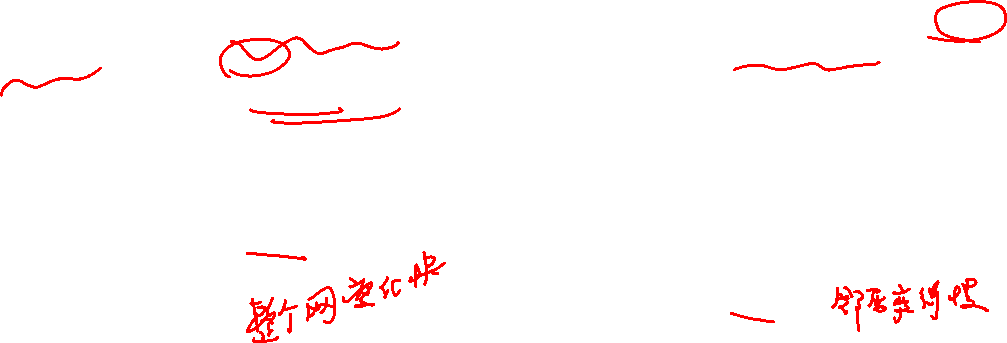 整个网变化快
邻居变得慢